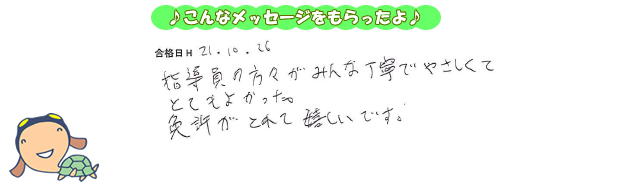 ♪こんなメッセージをもらったよ♪
合格日 H 21.10.26
指導員の方々がみんな丁寧でやさしくて
とてもよかった。
免許がとれて嬉しいです。